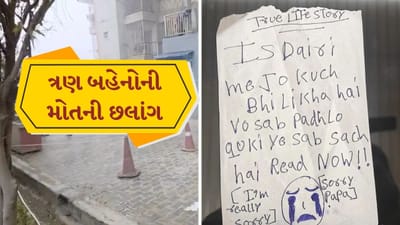 ત્રણ બહેનોની
મોતની છલાંગ
True Life Story
Is Dairi
me Jo kuch
Bhi Likha hai
Vo sab Padhlo
quki Ye sab sach
hai Read Now!!
[I'm really sorry]
[sorry Papa]